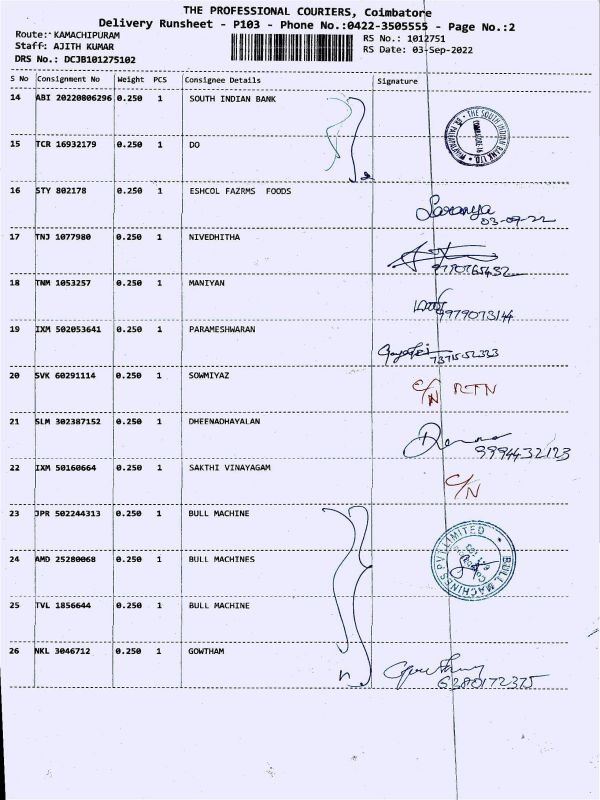 THE PROFESSIONAL COURIERS, Coimbatore
Delivery Runsheet - P103 - Phone No.:0422-3505555 - Page No.:2
Route: KAMACHIPURAM
RS No.: 1012751
Staff: AJITH KUMAR
RS Date: 03-Sep-2022
DRS No.: DCJB101275102
S No Consignment No Weight PCS Consignee Details Signature
14 ABI 20220806296 0.250 1 SOUTH INDIAN BANK
THE SOUTH INDIAN BANK LTD.
15 TCR 16932179 0.250 1 DO
16 STY 802178 0.250 1 ESHCOL FAZRMS FOODS
Saranya
03-09-22
17 TNJ 1077980 0.250 1 NIVEDHITHA
9790765432
18 TNM 1053257 0.250 1 MANIYAN
9979073144
19 IXM 502053641 0.250 1 PARAMESHWARAN
20 SVK 60291114 0.250 1 SOWMIYAZ
C/N RTN
21 SLM 302387152 0.250 1 DHEENADHAYALAN
9994432123
22 IXM 50160664 0.250 1 SAKTHI VINAYAGAM
C/N
23 JPR 502244313 0.250 1 BULL MACHINE
24 AMD 25280068 0.250 1 BULL MACHINES
BULL MACHINES PVT LIMITED
25 TVL 1856644 0.250 1 BULL MACHINE
26 NKL 3046712 0.250 1 GOWTHAM
6280172375